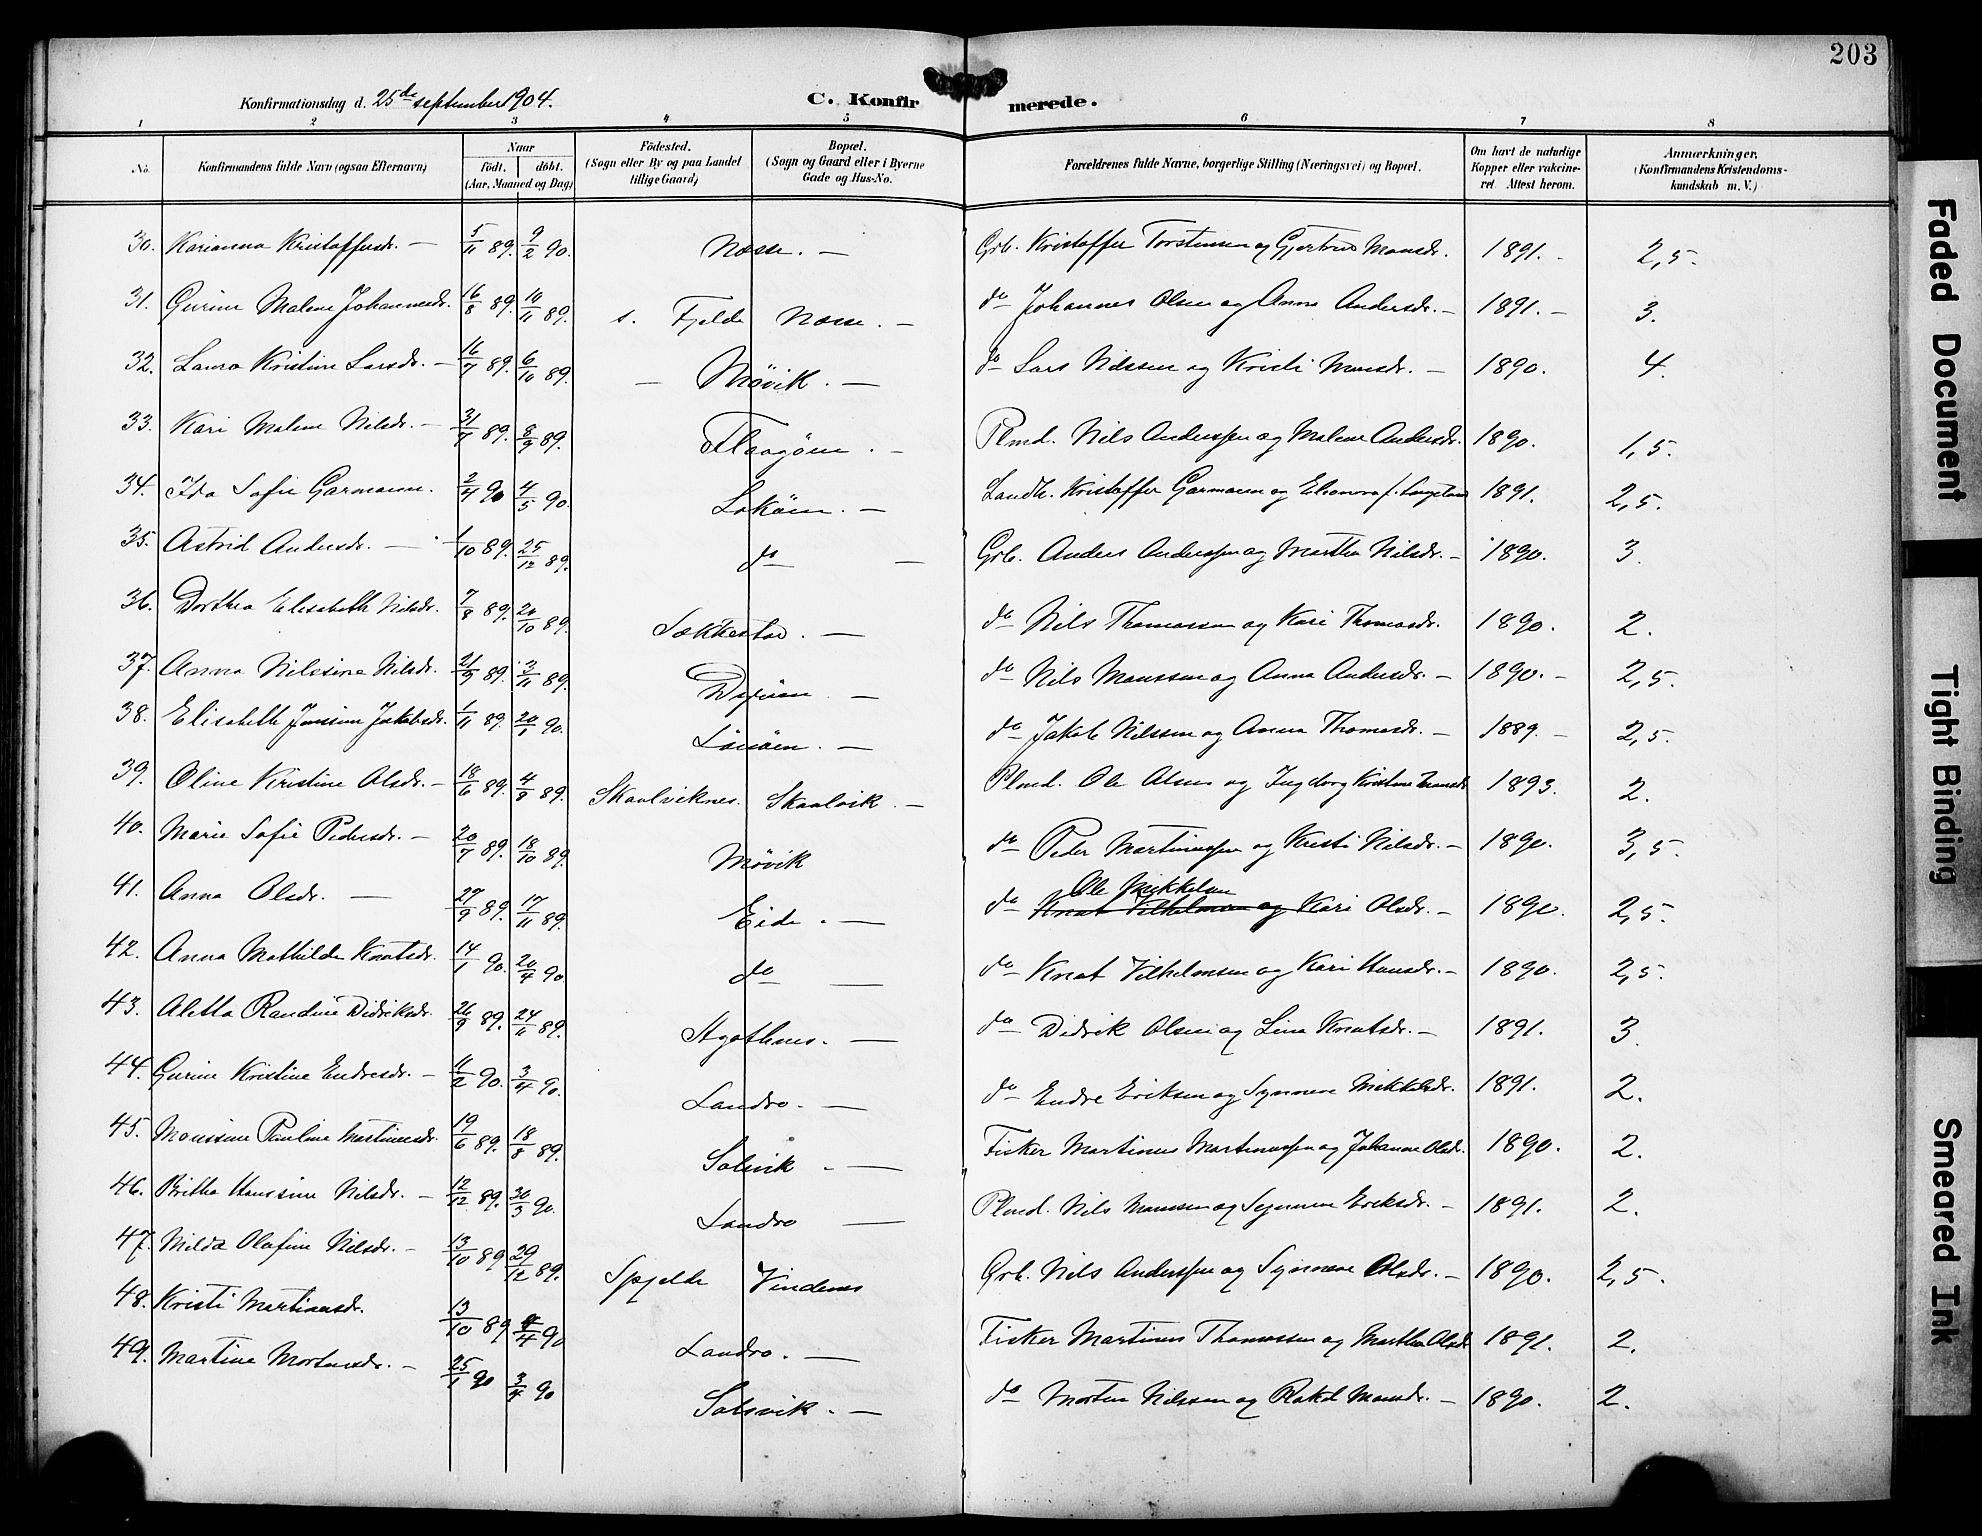 203
Konfirmationsdag d. 25de september 1904.
C. Konfirmerede.
1 2 3 4 5 6 7 8
No.
Konfirmandens fulde Navn (ogsaa Efternavn)
Naar
födt. döbt.
(Aar, Maaned og Dag)
Födested.
(Sogn eller By og paa Landet
tillige Gaard)
Bopæl.
(Sogn og Gaard eller i Byerne
Gade og Hus-No.
Forældrenes fulde Navne, borgerlige Stilling (Næringsvei) og Bopæl.
Om havt de naturlige
Kopper eller vakcine-
ret. Attest herom.
Anmærkninger.
(Konfirmandens Kristendoms-
kundskab m. V.)
30. Karianna Kristoffersdr. — 5/11 89. 9/2 90. Næsse. — Grb. Kristoffer Torstensen og Gjertrud Monsdr. 1891. - 2,5.
31. Gurine Malene Johannesdr. 16/8 89. 10/11 89. s. Fjelde Næsse. — do Johannes Olsen og Anna Andersdr. — 1891. — 3.
32. Laura Kristine Larsdr. — 16/7 89. 6/10 89. — Móvik. — do Lars Nilssen og Kristi Monsdr. — 1890. 4.
33. Kari Malene Nilsdr. — 31/7 89. 8/9 89. Flaagöen. — Plmd. Nils Anderssen og Malene Andersdr. 1890. 1,5.
34. Ida Sofie Garmann. 2/4 90 4/5 90. Loköen. — Landh. Kristoffer Garmann og Eleonora f. 1891. 2,5.
35. Astrid Andersdr. — 1/10 89. 25/12 89. do — Grb. Anders Anderssen og Martha Nilsdr. — 1890. 3.
36. Dorthea Elisabeth Nilsdr. 7/8 89. 20/10 89. Sækkestad. — do Nils Thomassen og Kari Thomasdr. 1890. 2.
37. Anna Nilsine Nilsdr. 21/9 89. 3/11 89. — do Nils Monssen og Anna Andersdr. — 1890. — 2,5.
38. Elisabeth Jakobsdr. 1/11 89. 20/1 90. Lönöen. — do Jakob Nilssen og Anna Thomasdr. — 1889. — 2,5.
39. Oline Kristine Olsdr. — 18/6 89. 4/8 89. Skaalviknes. Skaalvik. — Plmd. Ole Olsen og Ingeborg Kristine 1893. 2.
40. Marie Sofie Pedersdr. — 20/7 89. 18/10 89. Móvik do Peder Martinussen og Kristi Nilsdr. — 1890. 3,5.
41. Anna Olsdr. — 27/9 89. 17/11 89. Eide. — do Ole Mikkelsen
Knut Vilhelmsen og Kari Olsdr. — 1890. 2,5.
42. Anna Mathilde Knutsdr. 14/1 90. 20/4 90. do — do Knut Vilhelmsen og Kari Hansdr. — 1890. 2,5.
43. Aletta Randine Didriksdr. 26/9 89. 24/11 89. Agothnes. — do Didrik Olsen og Lina Knutsdr. — 1891. 3.
44. Gurine Kristine Endresdr. — 11/2 90. 3/4 90. Landro. — do Endre Eriksen og Synneve Mikkelsdr. 1891. 2.
45. Monssine Pauline Martinusdr. 19/6 89. 18/8 89. Solsvik. — Fisker Martinus Martinussen og Johanne Olsdr. 1890. 2.
46. Britha Hanssine Nilsdr. — 12/12 89. 30/3 90. Landro — Plmd. Nils Monssen og Synneve Eriksdr. — 1891. 2.
47. Milda Olafine Nilsdr. — 13/10 89 29/12 89. Spjelde Vindenes Grb. Nils Anderssen og Synneve Olsdr. — 1890. 2,5.
48. Kristi Martinusdr. 13/10 89 4/4 90 Landro. — Fisker Martinus Thomassen og Martha Olsdr. 1891. 2.
49. Martine Mortensdr. — 25/1 90 3/4 90 Solsvik. — do Morten Nilssen og Rakel Monsdr. — 1890. 2.
Faded Document
Tight Binding
Smeared Ink